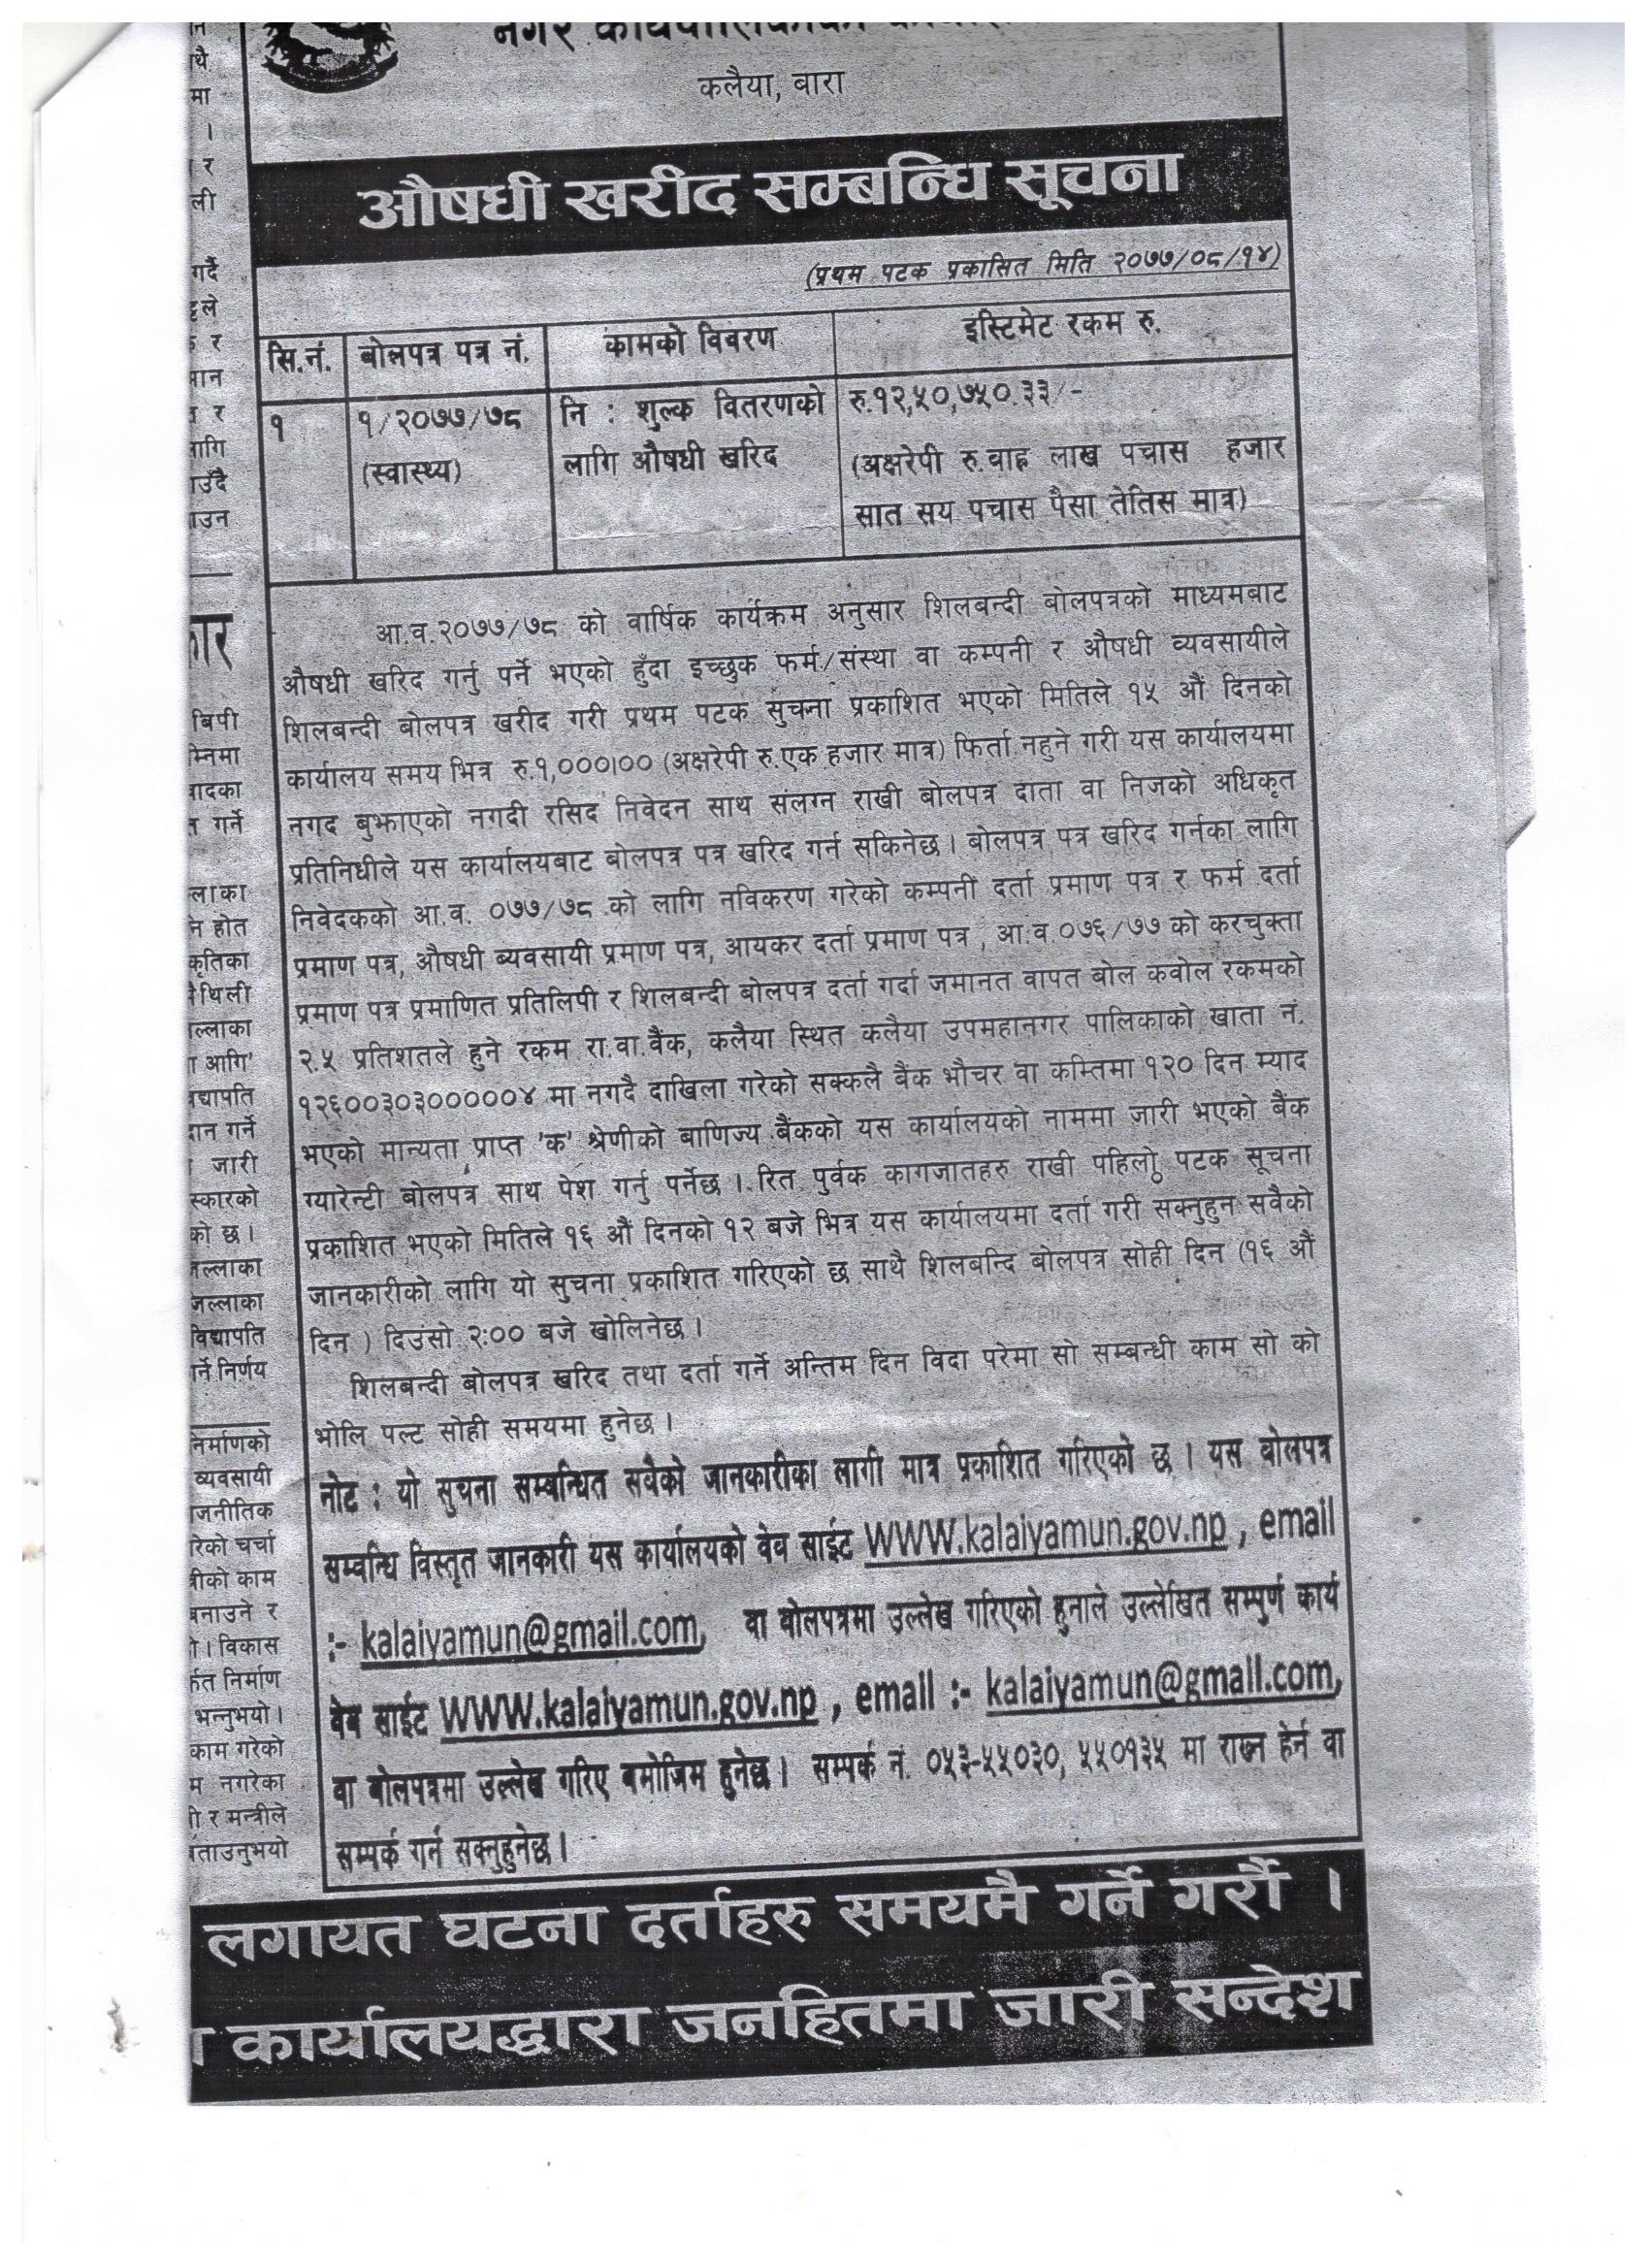 कलैया, बारा
औषधी खरीद सम्बन्धि सूचना
(प्रथम पटक प्रकासित मिति २०७७/०८/१४)
सि.नं. बोलपत्र पत्र नं. कामको विवरण इस्टिमेट रकम रु.
१ १/२०७७/७८ नि : शुल्क वितरणको रु.१२,५०,७५०.३३/-
(स्वास्थ्य) लागि औषधी खरिद (अक्षरेपी रु.वाह्र लाख पचास हजार
सात सय पचास पैसा तेतिस मात्र)
आ.व.२०७७/७८ को वार्षिक कार्यक्रम अनुसार शिलबन्दी बोलपत्रको माध्यमबाट
औषधी खरिद गर्नु पर्ने भएको हुँदा इच्छुक फर्म/संस्था वा कम्पनी र औषधी व्यवसायीले
शिलबन्दी बोलपत्र खरीद गरी प्रथम पटक सुचना प्रकाशित भएको मितिले १५ औं दिनको
कार्यालय समय भित्र रु.१,०००|०० (अक्षरेपी रु.एक हजार मात्र) फिर्ता नहुने गरी यस कार्यालयमा
नगद बुझाएको नगदी रसिद निवेदन साथ संलग्न राखी बोलपत्र दाता वा निजको अधिकृत
प्रतिनिधीले यस कार्यालयबाट बोलपत्र पत्र खरिद गर्न सकिनेछ। बोलपत्र पत्र खरिद गर्नका लागि
निवेदकको आ.व. ०७७/७८ को लागि नविकरण गरेको कम्पनी दर्ता प्रमाण पत्र र फर्म दर्ता
प्रमाण पत्र, औषधी ब्यवसायी प्रमाण पत्र, आयकर दर्ता प्रमाण पत्र , आ.व.०७६/७७ को करचुक्ता
प्रमाण पत्र प्रमाणित प्रतिलिपी र शिलबन्दी बोलपत्र दर्ता गर्दा जमानत वापत बोल कवोल रकमको
२.५ प्रतिशतले हुने रकम रा.वा.बैंक, कलैया स्थित कलैया उपमहानगर पालिकाको खाता नं.
१२६००३०३००००४ मा नगदै दाखिला गरेको सक्कलै बैंक भौचर वा कम्तिमा १२० दिन म्याद
भएको मान्यता प्राप्त 'क' श्रेणीको बाणिज्य बैंकको यस कार्यालयको नाममा जारी भएको बैंक
ग्यारेन्टी बोलपत्र साथ पेश गर्नु पर्नेछ । रित पुर्वक कागजातहरु राखी पहिलो पटक सूचना
प्रकाशित भएको मितिले १६ औं दिनको १२ बजे भित्र यस कार्यालयमा दर्ता गरी सक्नुहुन सवैको
जानकारीको लागि यो सुचना प्रकाशित गरिएको छ साथै शिलबन्दि बोलपत्र सोही दिन (१६ औं
दिन ) दिउंसो २:०० बजे खोलिनेछ ।
शिलबन्दी बोलपत्र खरिद तथा दर्ता गर्ने अन्तिम दिन विदा परेमा सो सम्बन्धी काम सो को
भोलि पल्ट सोही समयमा हुनेछ ।
नोट : यो सुचना सम्बन्धित सवैको जानकारीका लागी मात्र प्रकाशित गरिएको छ । यस बोलपत्र
सम्वन्धि विस्तृत जानकारी यस कार्यालयको वेव साईट WWW.kalaiyamun.gov.np , email
:- kalaiyamun@gmail.com, वा बोलपत्रमा उल्लेख गरिएको हुनाले उल्लेखित सम्पुर्ण कार्य
वेव साईट WWW.kalaiyamun.gov.np , email :- kalaiyamun@gmail.com,
वा बोलपत्रमा उल्लेख गरिए बमोजिम हुनेछ । सम्पर्क नं. ०५३-५५०३०, ५५०१३५ मा हेर्न वा
सम्पर्क गर्न सक्नुहुनेछ ।
लगायत घटना दर्ताहरु समयमै गर्ने गरौं ।
कार्यालयद्धारा जनहितमा जारी सन्देश
गर्दै
बिपी
गर्ने
होत
आगि'
जारी
को छ।
विद्यापति
गर्ने निर्णय
व्यवसायी
रेको चर्चा
बनाउने र
। विकास
निर्माण
भन्नुभयो।
काम गरेको
नगरेका
र मन्त्रीले